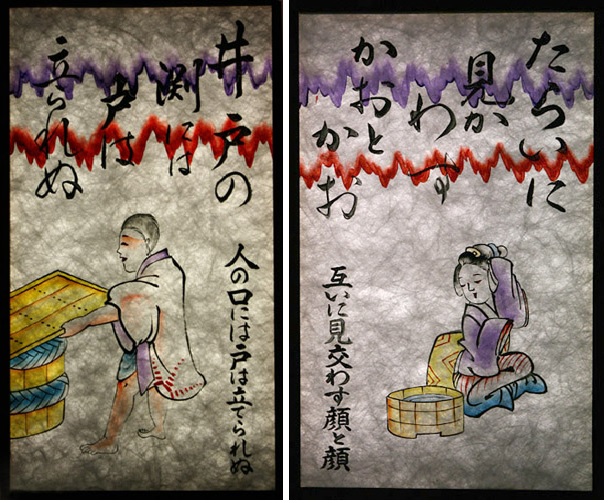 井戸の
渕には
戸は
立られぬ
人の口には戸は立てられぬ
たらいに
見か
わす
かおと
かお
互いに見交わす顔と顔